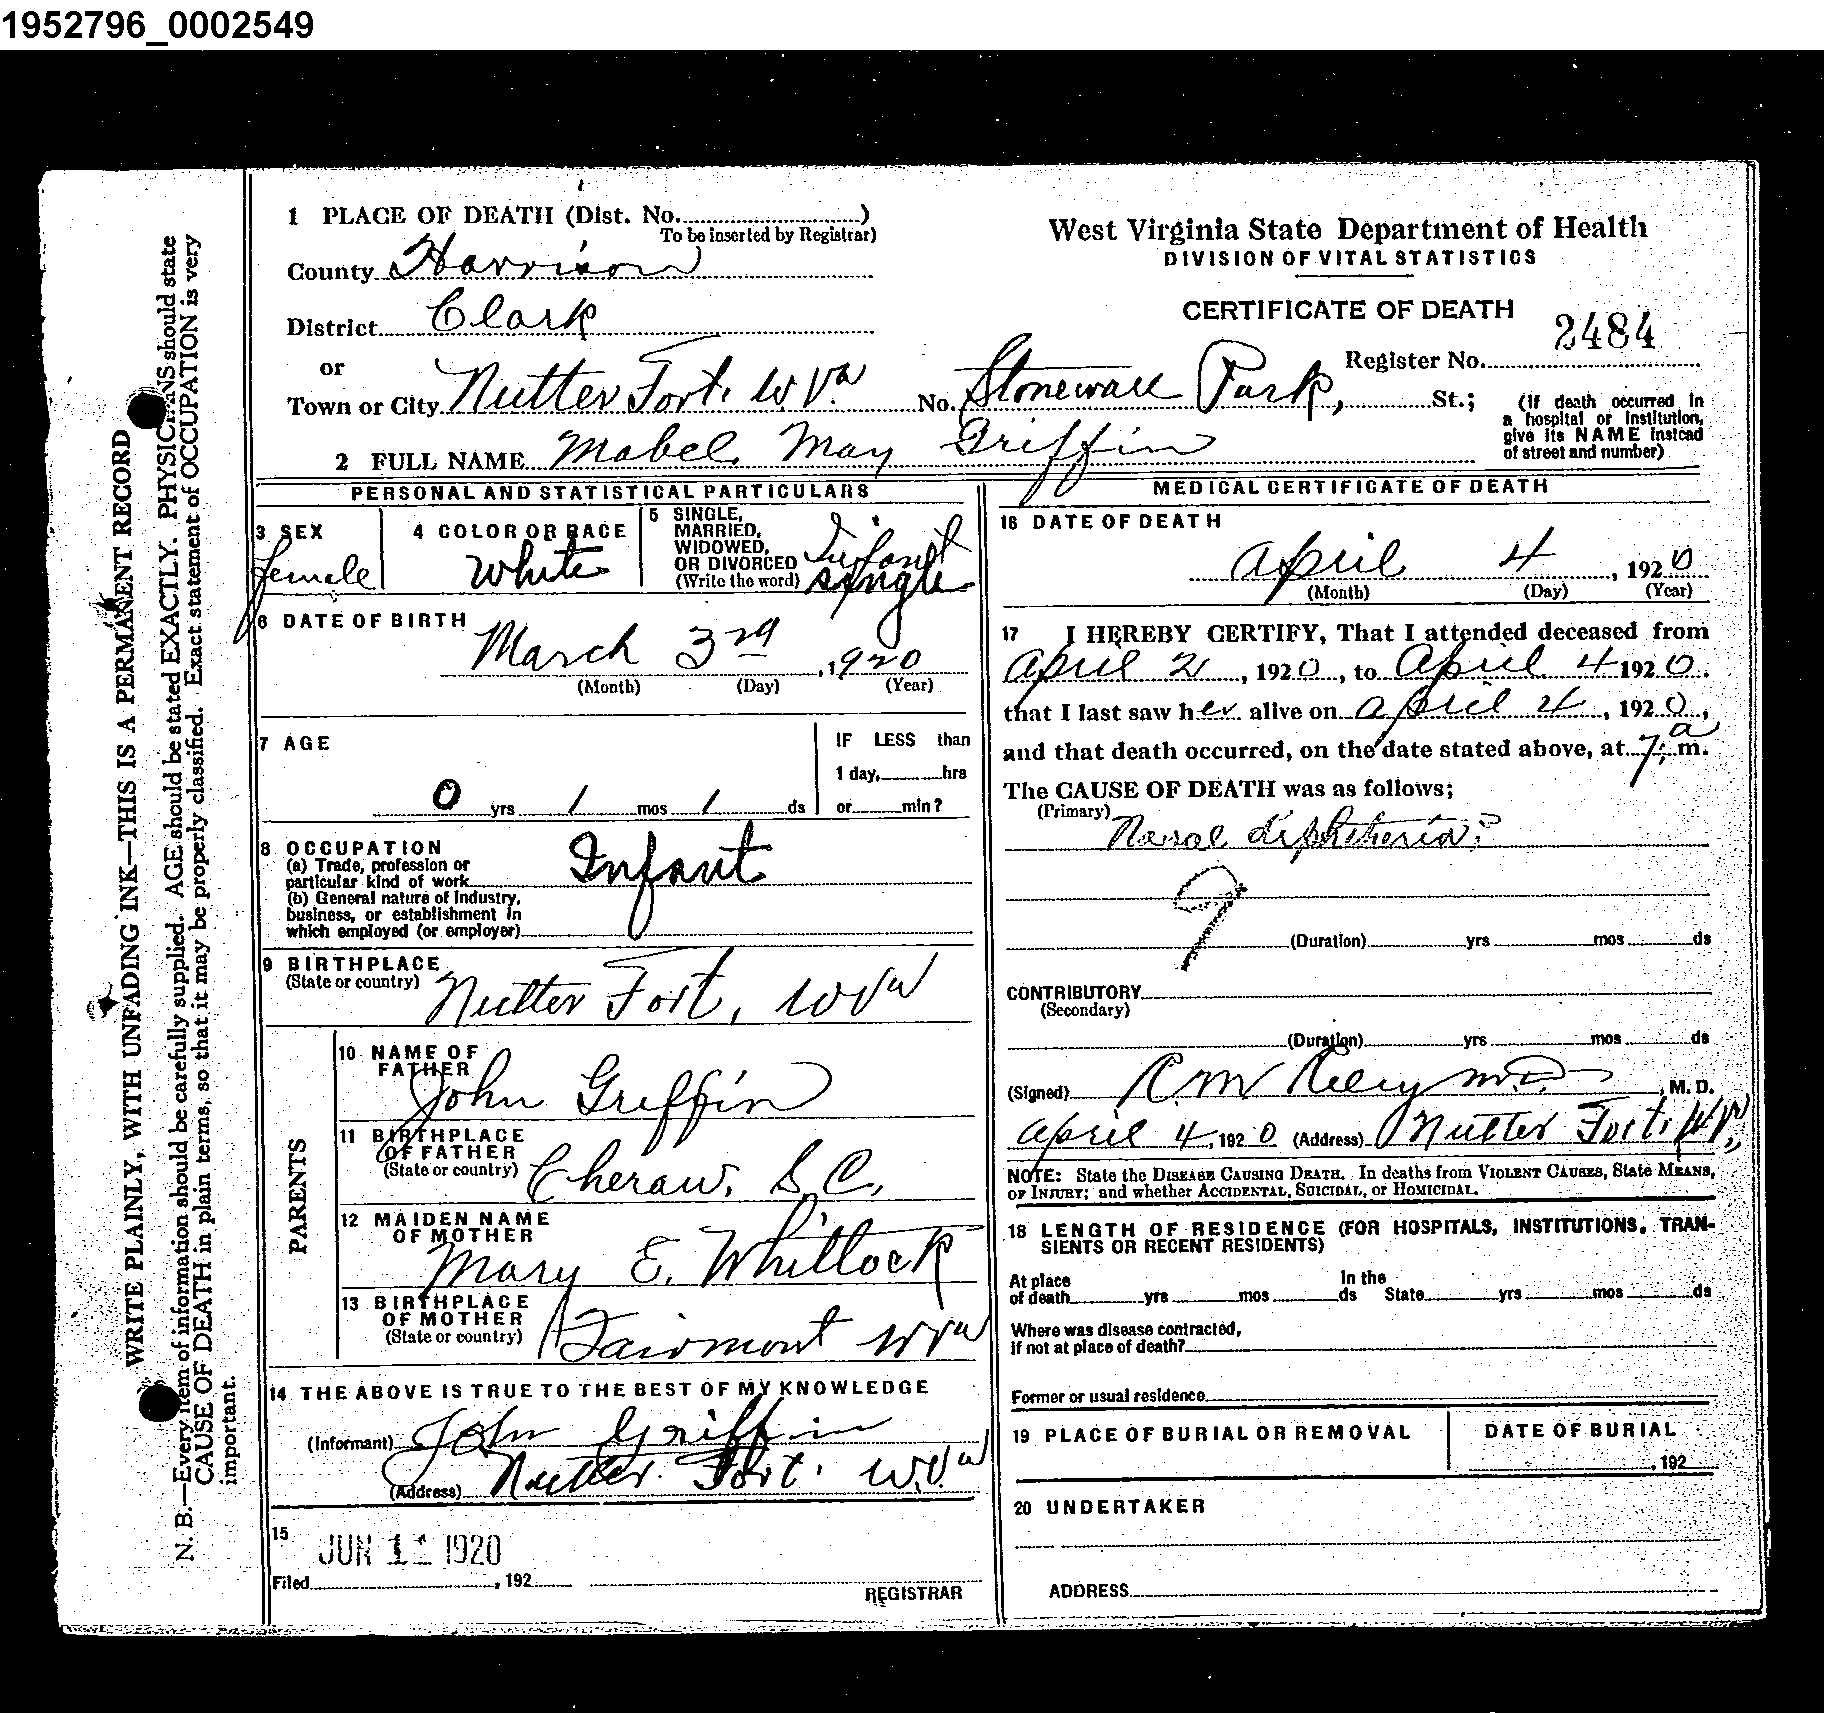 1952796_0002549
1 PLACE OF DEATH (Dist. No. )
To be inserted by Registrar)
County Harrison
District Clark
or
Town or City Nutter Fort. W Va. No. Stonewall Park, St.;
2 FULL NAME Mabel May Griffin
West Virginia State Department of Health
DIVISION OF VITAL STATISTICS
CERTIFICATE OF DEATH
2484
Register No.
(If death occurred in
a hospital or institution,
give its NAME instead
of street and number)
PERSONAL AND STATISTICAL PARTICULARS
3 SEX
female
4 COLOR OR RACE
White
5 SINGLE,
MARRIED,
WIDOWED,
OR DIVORCED
(Write the word)
Infant
single
6 DATE OF BIRTH
March 3rd, 1920
(Month) (Day) (Year)
7 AGE
0 yrs 1 mos 1 ds
IF LESS than
1 day, hrs
or min?
8 OCCUPATION
(a) Trade, profession or
particular kind of work
Infant
(b) General nature of industry,
business, or establishment in
which employed (or employer)
9 BIRTHPLACE
(State or country) Nutter Fort, W Va
PARENTS
10 NAME OF
FATHER
John Griffin
11 BIRTHPLACE
OF FATHER
(State or country) Cheraw, S.C.
12 MAIDEN NAME
OF MOTHER
Mary E. Whitlock
13 BIRTHPLACE
OF MOTHER
(State or country) Fairmont W Va
14 THE ABOVE IS TRUE TO THE BEST OF MY KNOWLEDGE
(Informant) John Griffin
(Address) Nutter Fort. W.Va
15
JUN 11 1920
Filed , 192
REGISTRAR
MEDICAL CERTIFICATE OF DEATH
16 DATE OF DEATH
April 4, 1920
(Month) (Day) (Year)
17 I HEREBY CERTIFY, That I attended deceased from
April 2, 1920, to April 4 1920.
that I last saw her alive on April 4, 1920,
and that death occurred, on the date stated above, at 7 a m.
The CAUSE OF DEATH was as follows;
(Primary) Nasal diphtheria?
9
(Duration) yrs mos ds
CONTRIBUTORY
(Secondary)
(Duration) yrs mos ds
(Signed) R M Riley M.D., M. D.
April 4, 1920 (Address) Nutter Fort, W.V.
NOTE: State the DISEASE CAUSING DEATH. In deaths from VIOLENT CAUSES, State MEANS,
OF INJURY; and whether ACCIDENTAL, SUICIDAL, or HOMICIDAL.
18 LENGTH OF RESIDENCE (FOR HOSPITALS, INSTITUTIONS, TRAN-
SIENTS OR RECENT RESIDENTS)
At place In the
of death yrs mos ds State yrs mos ds
Where was disease contracted,
If not at place of death?
Former or usual residence
19 PLACE OF BURIAL OR REMOVAL
DATE OF BURIAL
, 192
20 UNDERTAKER
ADDRESS
WRITE PLAINLY, WITH UNFADING INK—THIS IS A PERMANENT RECORD
N. B.—Every item of information should be carefully supplied. AGE should be stated EXACTLY. PHYSICIANS should state
CAUSE OF DEATH in plain terms, so that it may be properly classified. Exact statement of OCCUPATION is very
important.